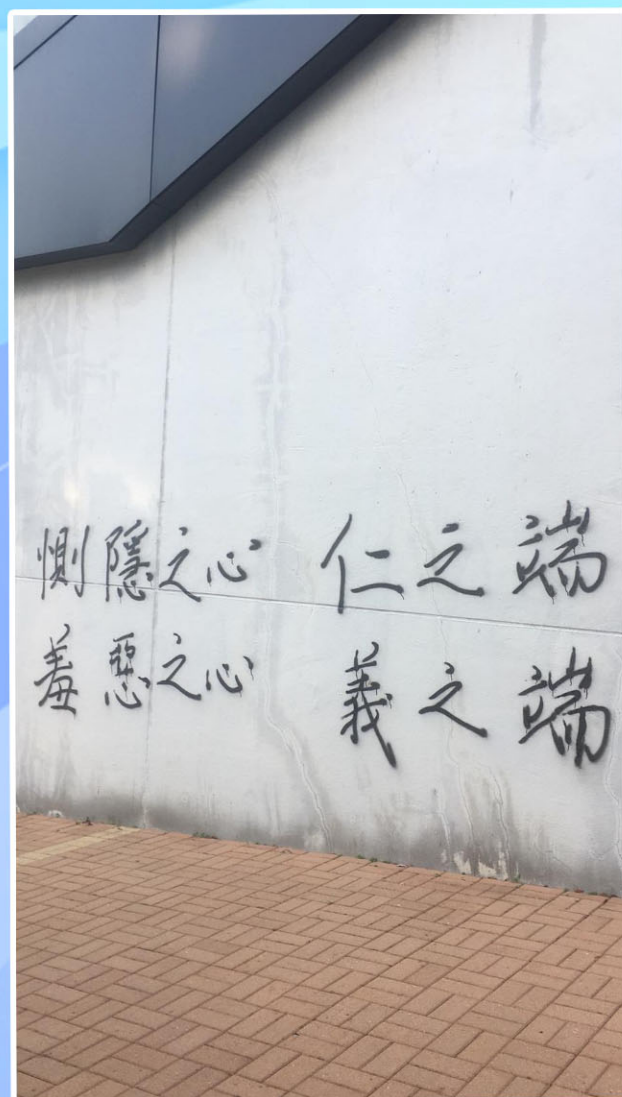 惻隱之心 仁之端
羞惡之心 義之端